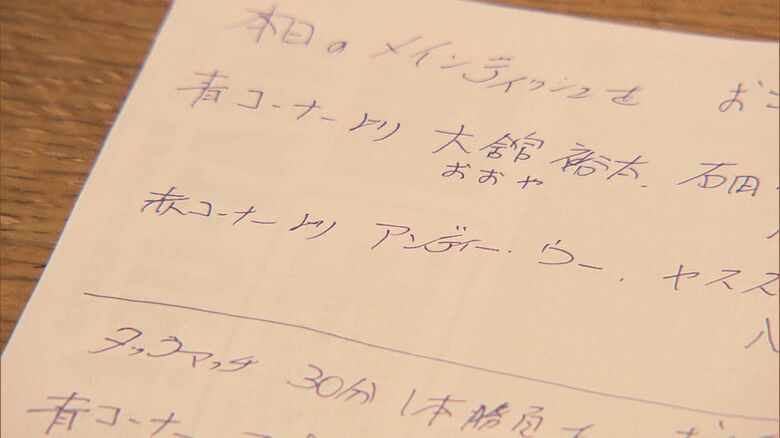 本日のメインディッシュを お
青コーナーより 大舘裕太、石田
おおや
赤コーナーより アンディー・ウー、ヤスス
八
タッグマッチ 30分1本勝負を
青コーナー